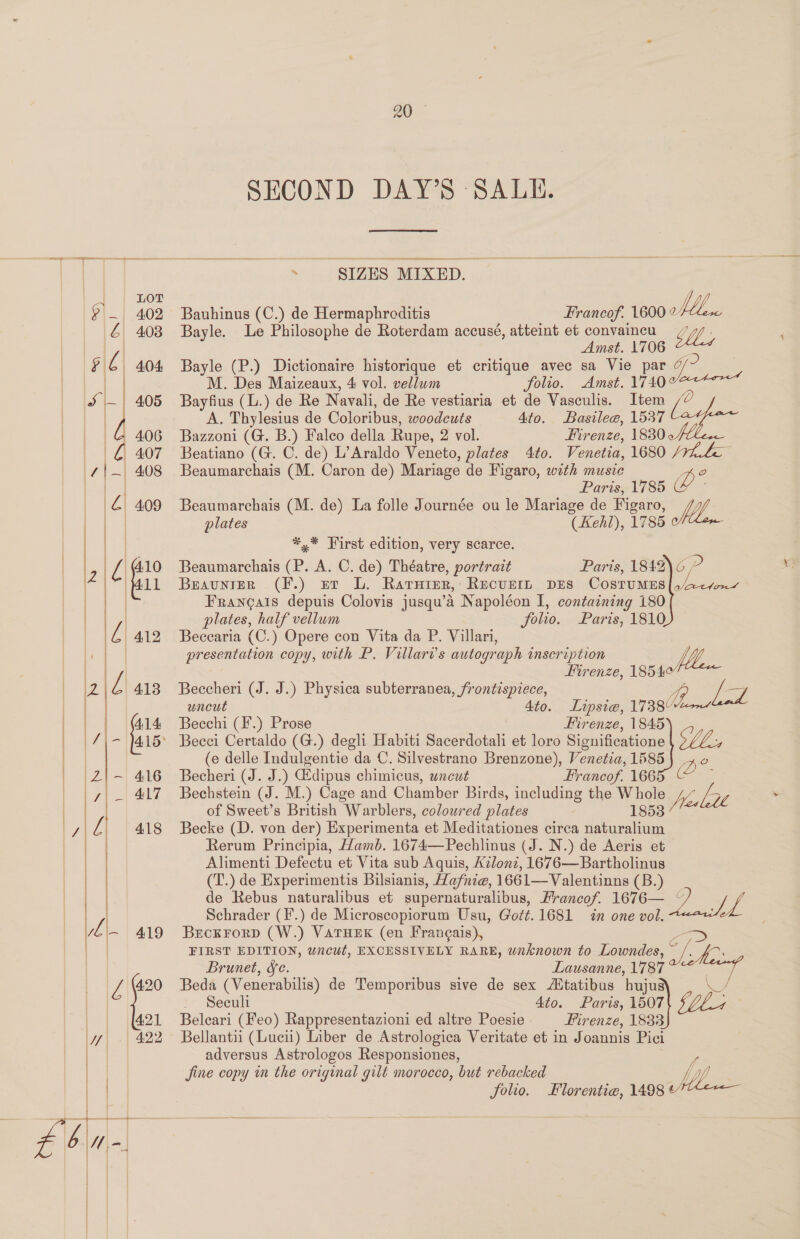 20
SECOND DAY'S SALE.
SIZES MIXED.
LOT
8 - 402 Bauhinus (C.) de Hermaphroditis Francof. 1600
6 403 Bayle. Le Philosophe de Roterdam accusé, atteint et convaincu
Amst. 1706
8 6 404 Bayle (P.) Dictionaire historique et critique avec sa Vie par
M. Des Maizeaux, 4 vol. vellum folio. Amst. 1740
5 - 405 Bayfius (L.) de Re Navali, de Re vestiaria et de Vasculis. Item
A. Thylesius de Coloribus, woodcuts 4to. Basileæ, 1537
6 406 Bazzoni (G. B.) Falco della Rupe, 2 vol. Firenze, 1830 Allen
6 407 Beatiano (G. C. de) L'Araldo Veneto, plates 4to. Venetia, 1680
1 - 408 Beaumarchais (M. Caron de) Mariage de Figaro, with music
Paris, 1785
6 409 Beaumarchais (M. de) La folle Journée ou le Mariage de Figaro,
plates (Kehl), 1785 Allen
*** First edition, very scarce.
2 6 410 Beaumarchais (P. A. C. de) Théatre, portrait Paris, 1842
411 BEAUNIER (F.) ET L. RATHIER, RECUEIL DES COSTUMES
FRANÇAIS depuis Colovis jusqu'à Napoléon I, containing 180
plates, half vellum folio. Paris, 1810
6 412 Beccaria (C.) Opere con Vita da P. Villari,
presentation copy, with P. Villari's autograph inscription
Firenze, 1854 Allen
2 6 413 Beccheri (J. J.) Physica subterranea, frontispiece,
uncut 4to. Lipsiæ, 1738
414 Becchi (F.) Prose Firenze, 1845
1 - 415 Becci Certaldo (G.) degli Habiti Sacerdotali et loro Significatione
(e delle Indulgentie da C. Silvestrano Brenzone), Venetia, 1585
2 - 416 Becheri (J. J.) Œdipus chimicus, uncut Francof. 1665
1 - 417 Bechstein (J. M.) Cage and Chamber Birds, including the Whole
of Sweet's British Warblers, coloured plates 1853
1 6 418 Becke (D. von der) Experimenta et Meditationes circa naturalium
Rerum Principia, Hamb. 1674—Pechlinus (J. N.) de Aeris et
Alimenti Defectu et Vita sub Aquis, Kiloni, 1676—Bartholinus
(T.) de Experimentis Bilsianis, Hafniæ, 1661—Valentinns (B.)
de Rebus naturalibus et supernaturalibus, Francof. 1676—
Schrader (F.) de Microscopiorum Usu, Gott. 1681 in one vol.
419 BECKFORD (W.) VATHEK (en Français),
FIRST EDITION, uncut, EXCESSIVELY RARE, unknown to Lowndes,
Brunet, &c. Lausanne, 1787
420 Beda (Venerabilis) de Temporibus sive de sex Ætatibus hujus
Seculi 4to. Paris, 1507
421 Belcari (Feo) Rappresentazioni ed altre Poesie Firenze, 1833
11 422 Bellantii (Lucii) Liber de Astrologica Veritate et in Joannis Pici
adversus Astrologos Responsiones,
fine copy in the original gilt morocco, but rebacked
folio. Florentiæ, 1498 Allen
£ 6 11 -